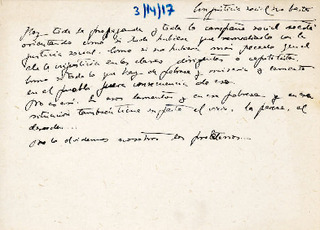 3/14/17
La justicia social no basta
Hoy toda la propaganda y toda la campaña social está
orientada como si todo hubiera que remediarlo con la
justicia social. Como si no hubiera más pecado que el
de la injusticia en las clases dirigentes o capitalistas.
Como si todo lo que hay de pobreza y miseria y lamento
en el pueblo fuera consecuencia de eso.
No es así. En esos lamentos y en esa pobreza y en esa
situación también tiene su parte el vicio, la pereza, el
desorden...
No lo olvidemos nosotros los